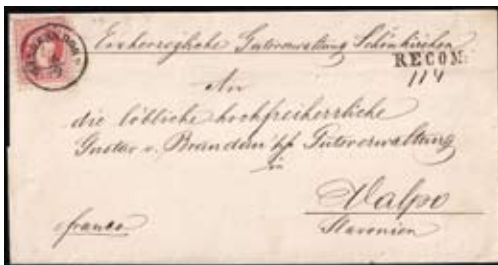 Erzherzogliche Gutsverwaltung Schönkirchen
RECOM:
114
An
die löbliche hochfreiherrliche
Gustav v. Brandau'sche Güterverwaltung
in
Valpo
Slavonien
franco